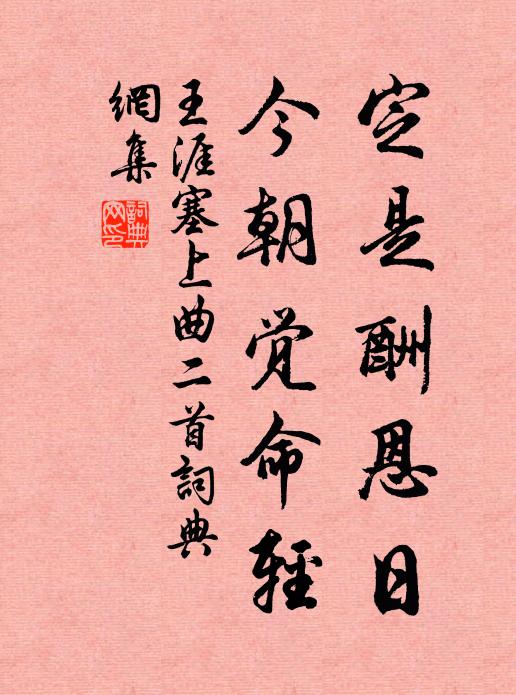 定是酬恩日
今朝觉命輕
王涯塞上曲二首詞典
網集
詞典网印